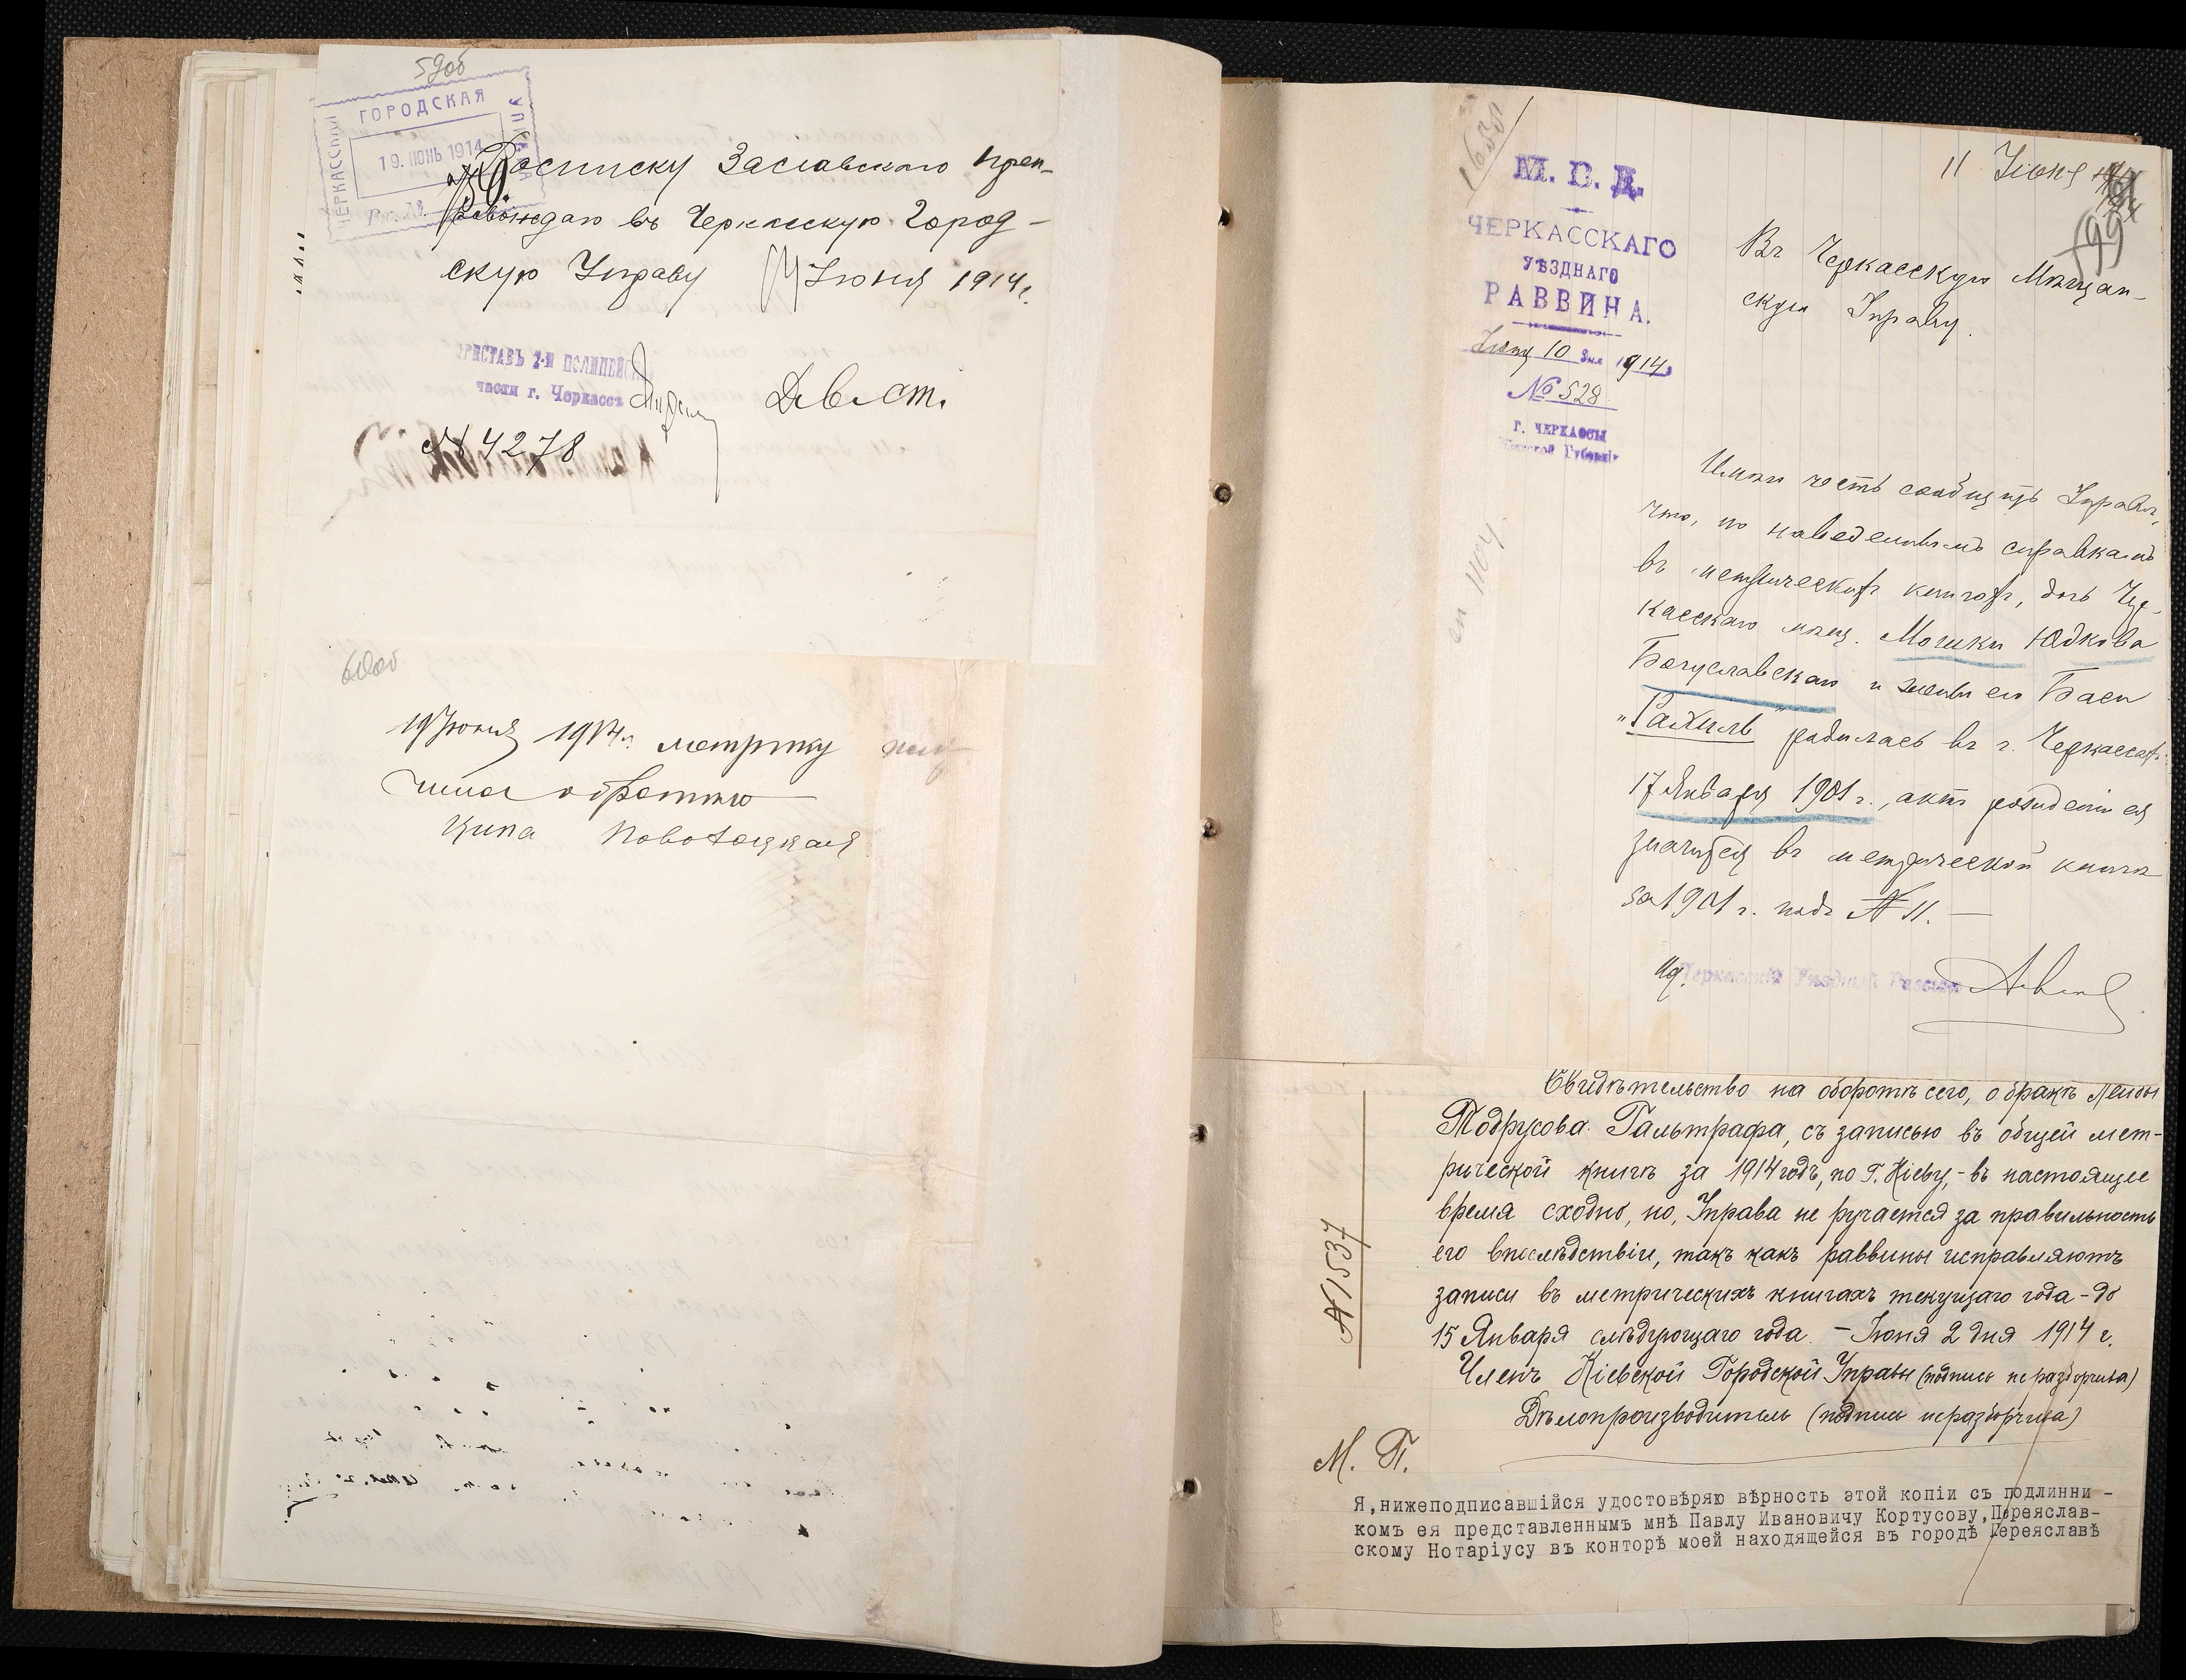 59об
ЧЕРКАССКАЯ ГОРОДСКАЯ УПРАВА
19. ІЮНЬ 1914
Росписку Заславскаго преп-
ровождаю въ Черкасскую Город-
скую Управу Іюня 1914г.
ПРИСТАВЪ 2-Й ПОЛИЦЕЙСК.
части г. Черкассъ
№ 4278
60об
19 Іюня 1914г. метрику полу-
чила обратно
Ципа Новоселецкая
11 Іюня
99
М. В. Д.
ЧЕРКАССКАГО
УѢЗДНАГО
РАВВИНА.
Іюня 10 дня 1914
№ 528
г. ЧЕРКАССЫ
Кіевской Губерніи
Въ Черкасскую Мѣщан-
скую Управу.
1104
Имѣю честь сообщить Управѣ,
что, по наведеннымъ справкамъ
въ метрическихъ книгахъ, дочь Чер-
касскаго мѣщ. Мошки Юдкова
Богуславскаго и жены его Баси
"Рахиль" родилась въ г. Черкассахъ
17 Января 1901 г., актъ рожденія ея
значится въ метрической книгѣ
за 1901 г. подъ № 11. —
Ид. Черкасскій Уѣздный Раввинъ
Свидѣтельство на оборотѣ сего, о бракѣ Лейбы
Тодрусова Гальтрафа, съ записью въ общей мет-
рической книгѣ за 1914 годъ, по г. Кіеву, - въ настоящее
время сходно, но, Управа не ручается за правильность
его впослѣдствіи, такъ какъ раввины исправляютъ
записи въ метрическихъ книгахъ текущаго года - до
15 Января слѣдующаго года. - Іюня 2 дня 1914 г.
Членъ Кіевской Городской Управы (подпись неразборчива)
Дѣлопроизводитель (подпись неразборчива)
№ 1537
М. П.
Я, нижеподписавшійся удостовѣряю вѣрность этой копіи съ подлинни-
комъ ея представленнымъ мнѣ Павлу Ивановичу Кортусову, Переяслав-
скому Нотаріусу въ конторѣ моей находящейся въ городѣ Переяславѣ